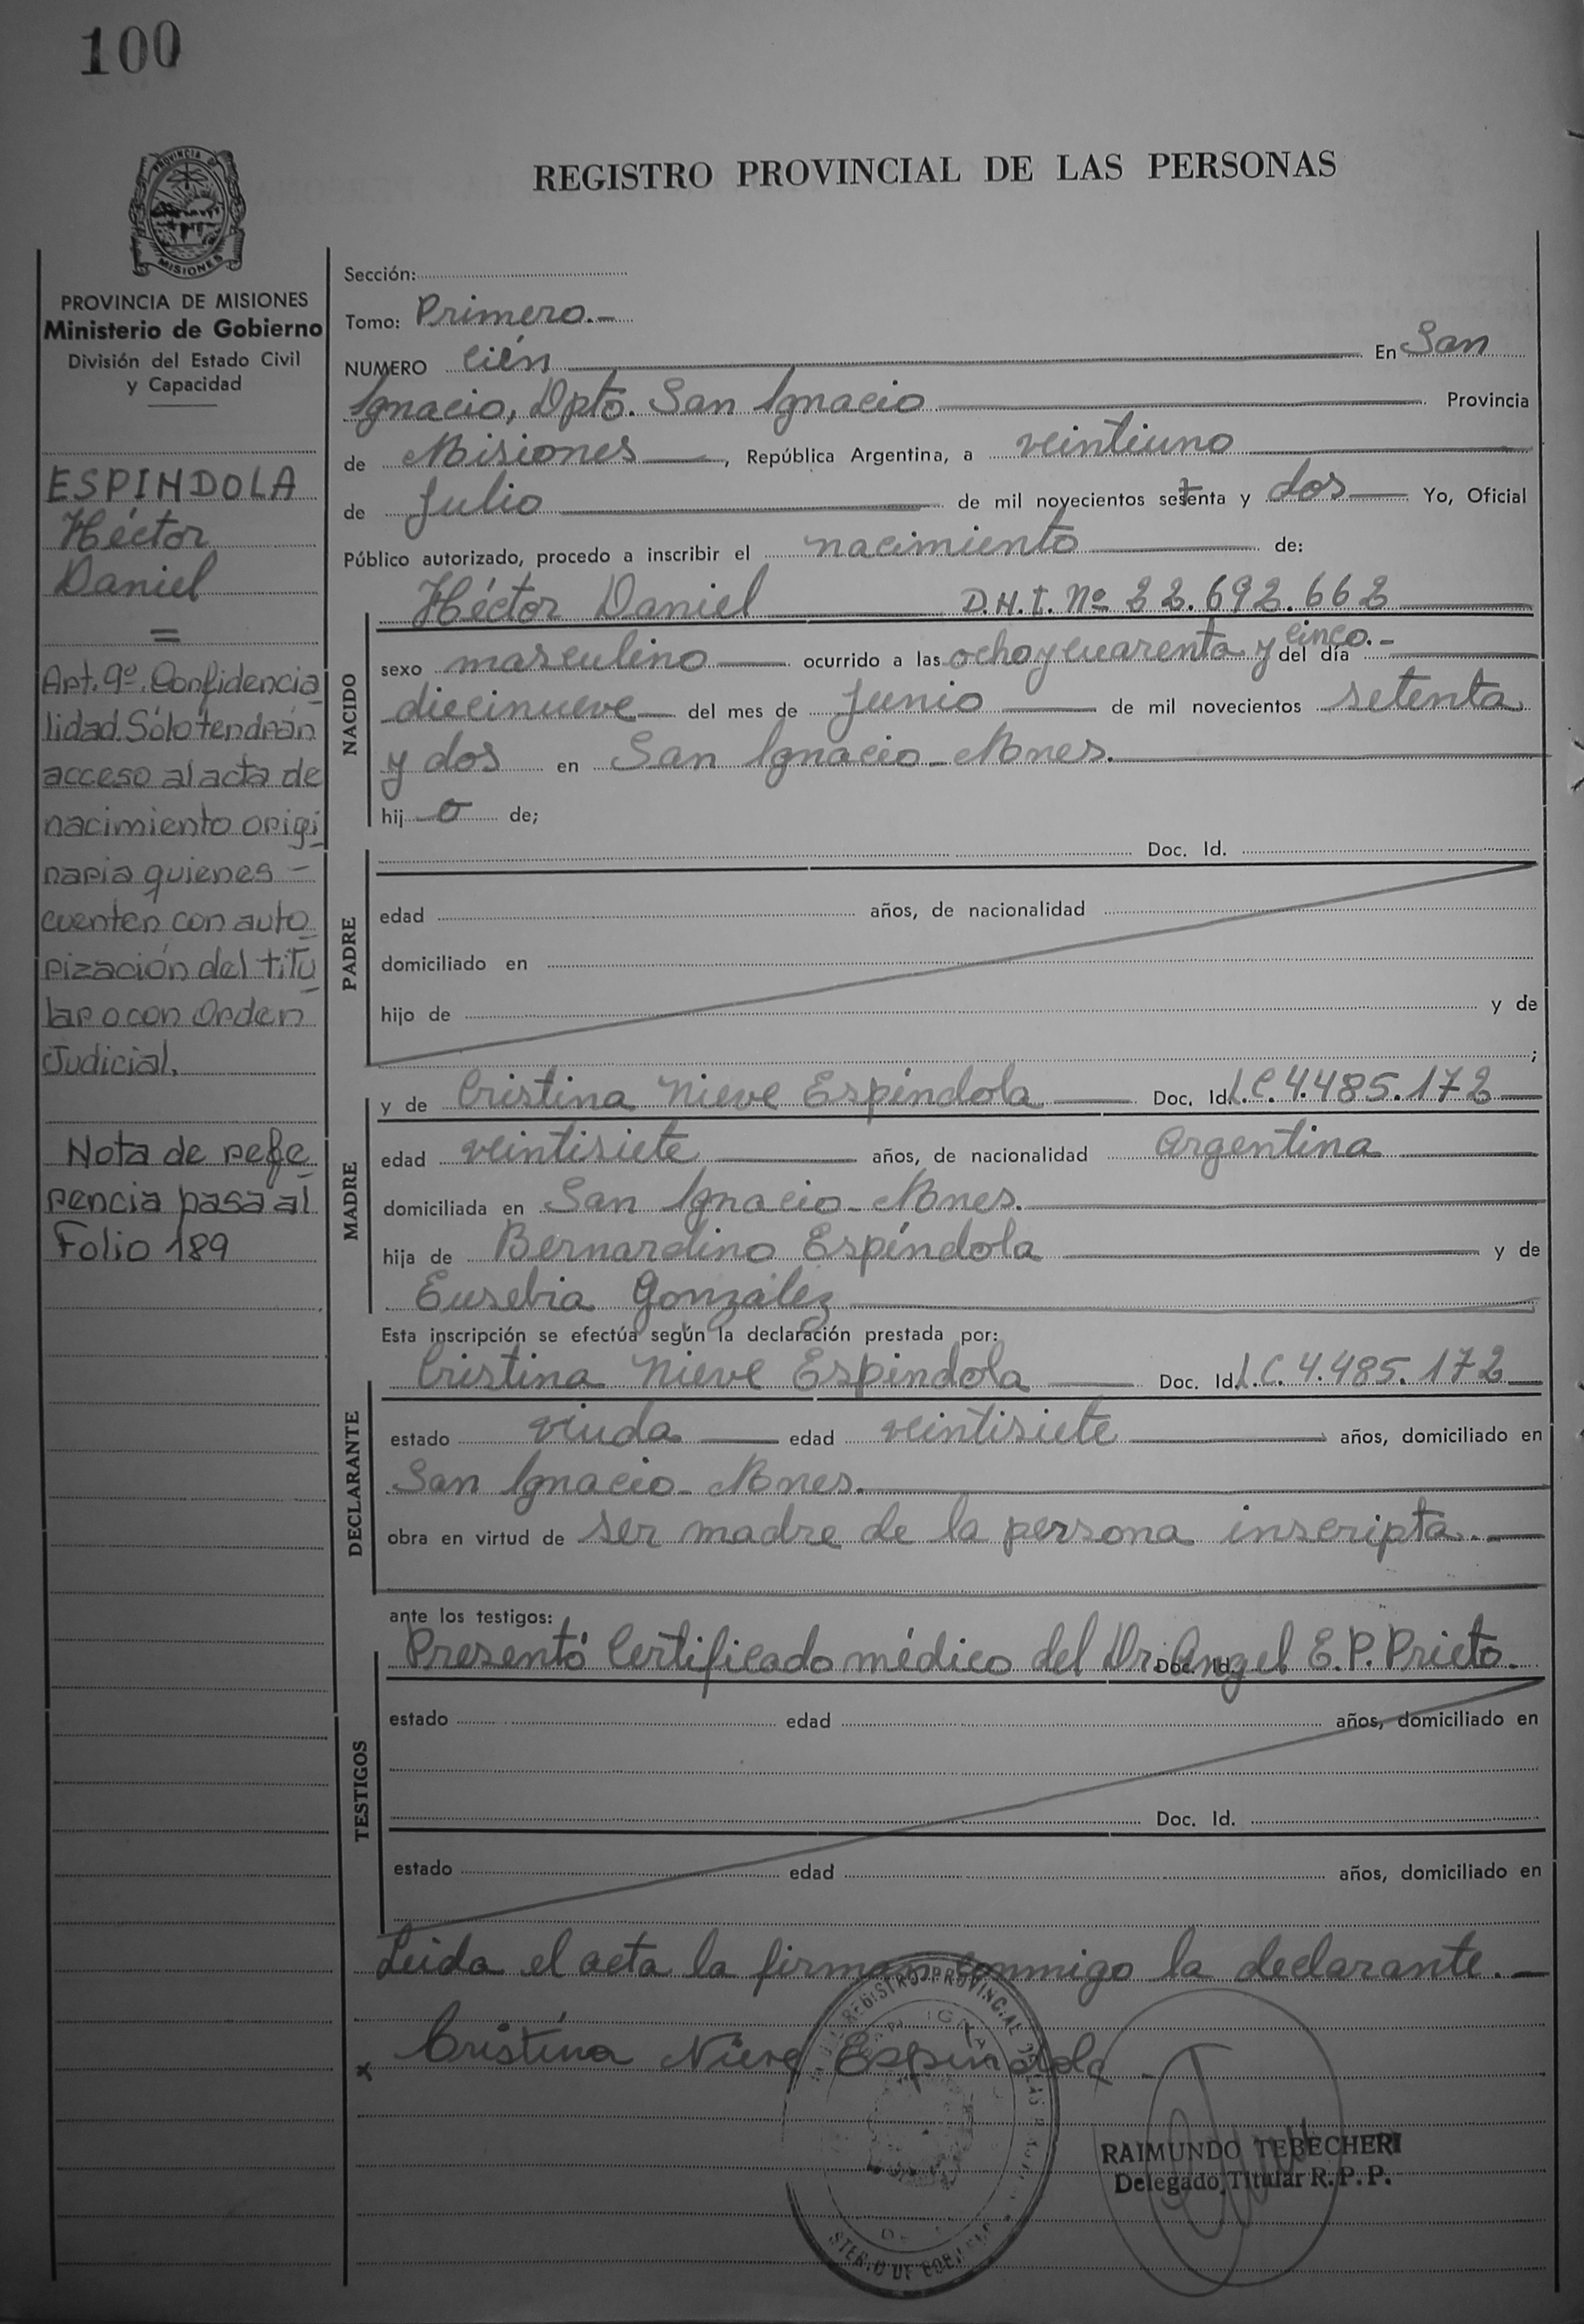 100
PROVINCIA DE
MISIONES
REGISTRO PROVINCIAL DE LAS PERSONAS
PROVINCIA DE MISIONES
Ministerio de Gobierno
División del Estado Civil
y Capacidad
ESPÍNDOLA
Héctor
Daniel
=
Art. 9º. Confidencia
lidad. Sólo tendrán
acceso al acta de
nacimiento origi
naria quienes -
cuenten con auto
rización del titu
lar o con Orden
Judicial.
Nota de refe
rencia pasa al
Folio 189
Sección:
Tomo: Primero.-
NUMERO Cién En San
Ignacio, Dpto. San Ignacio Provincia
de Misiones, República Argentina, a veintiuno
de Julio de mil novecientos setenta y dos Yo, Oficial
Público autorizado, procedo a inscribir el nacimiento de:
NACIDO
Héctor Daniel D.N.I. Nº 22.692.662
sexo masculino ocurrido a las ocho y cuarenta y cinco.- del día
diecinueve del mes de Junio de mil novecientos setenta
y dos en San Ignacio - Mnes.
hij o de;
PADRE
Doc. Id.
edad años, de nacionalidad
domiciliado en
hijo de y de
;
MADRE
y de Cristina Nieve Espíndola Doc. Id. L.C. 4.485.172
edad veintisiete años, de nacionalidad Argentina
domiciliada en San Ignacio - Mnes.
hija de Bernardino Espíndola y de
Eusebia González
Esta inscripción se efectúa según la declaración prestada por:
DECLARANTE
Cristina Nieve Espíndola Doc. Id. L.C. 4.485.172
estado viuda edad veintisiete años, domiciliado en
San Ignacio - Mnes.
obra en virtud de ser madre de la persona inscripta.-
ante los testigos:
TESTIGOS
Presentó Certificado médico del Dr. Angel E. P. Prieto.
Doc. Id.
estado edad años, domiciliado en
Doc. Id.
estado edad años, domiciliado en
Leída el acta la firman conmigo la declarante.-
x Cristina Nieve Espindola
REGISTRO PROVINCIAL DE LAS
RAIMUNDO TEBECHERI
Delegado Titular R.P.P.